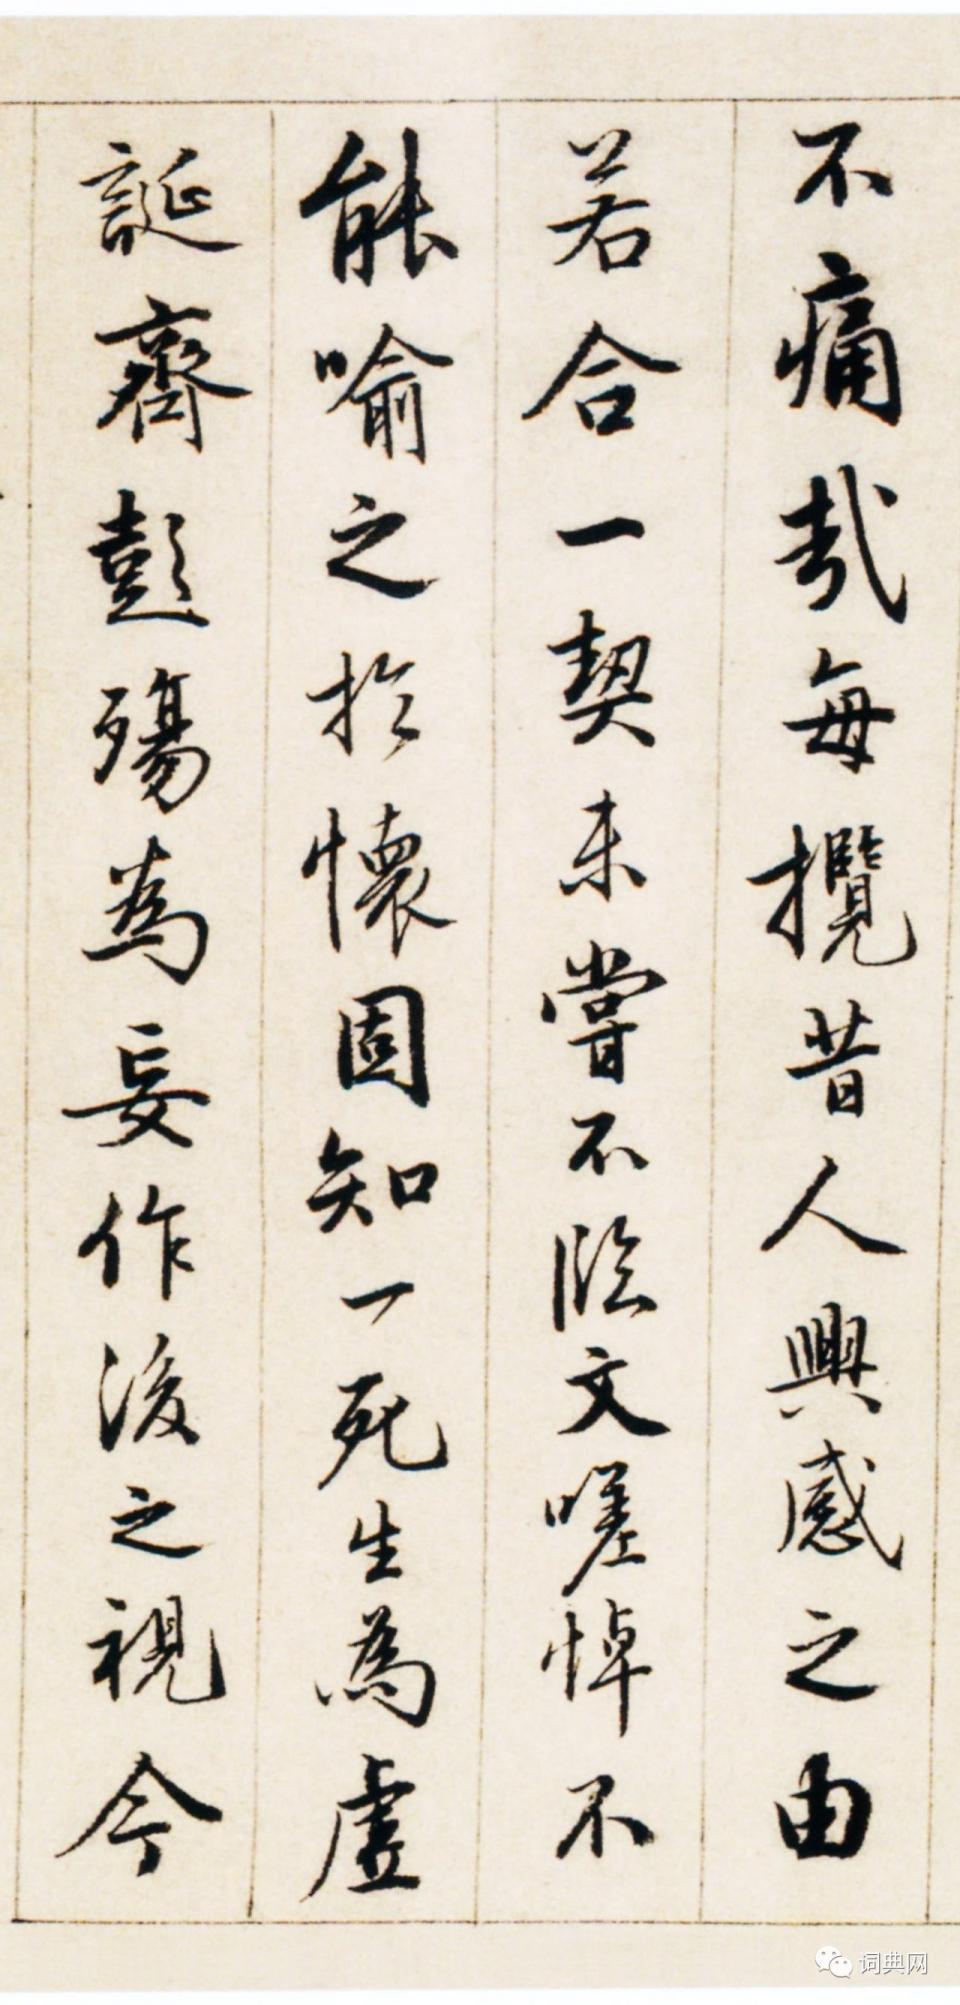 不痛哉每攬昔人興感之由
若合一契未嘗不臨文嗟悼不
能喻之於懷固知一死生為虛
誕齊彭殤為妄作後之視今
词典网